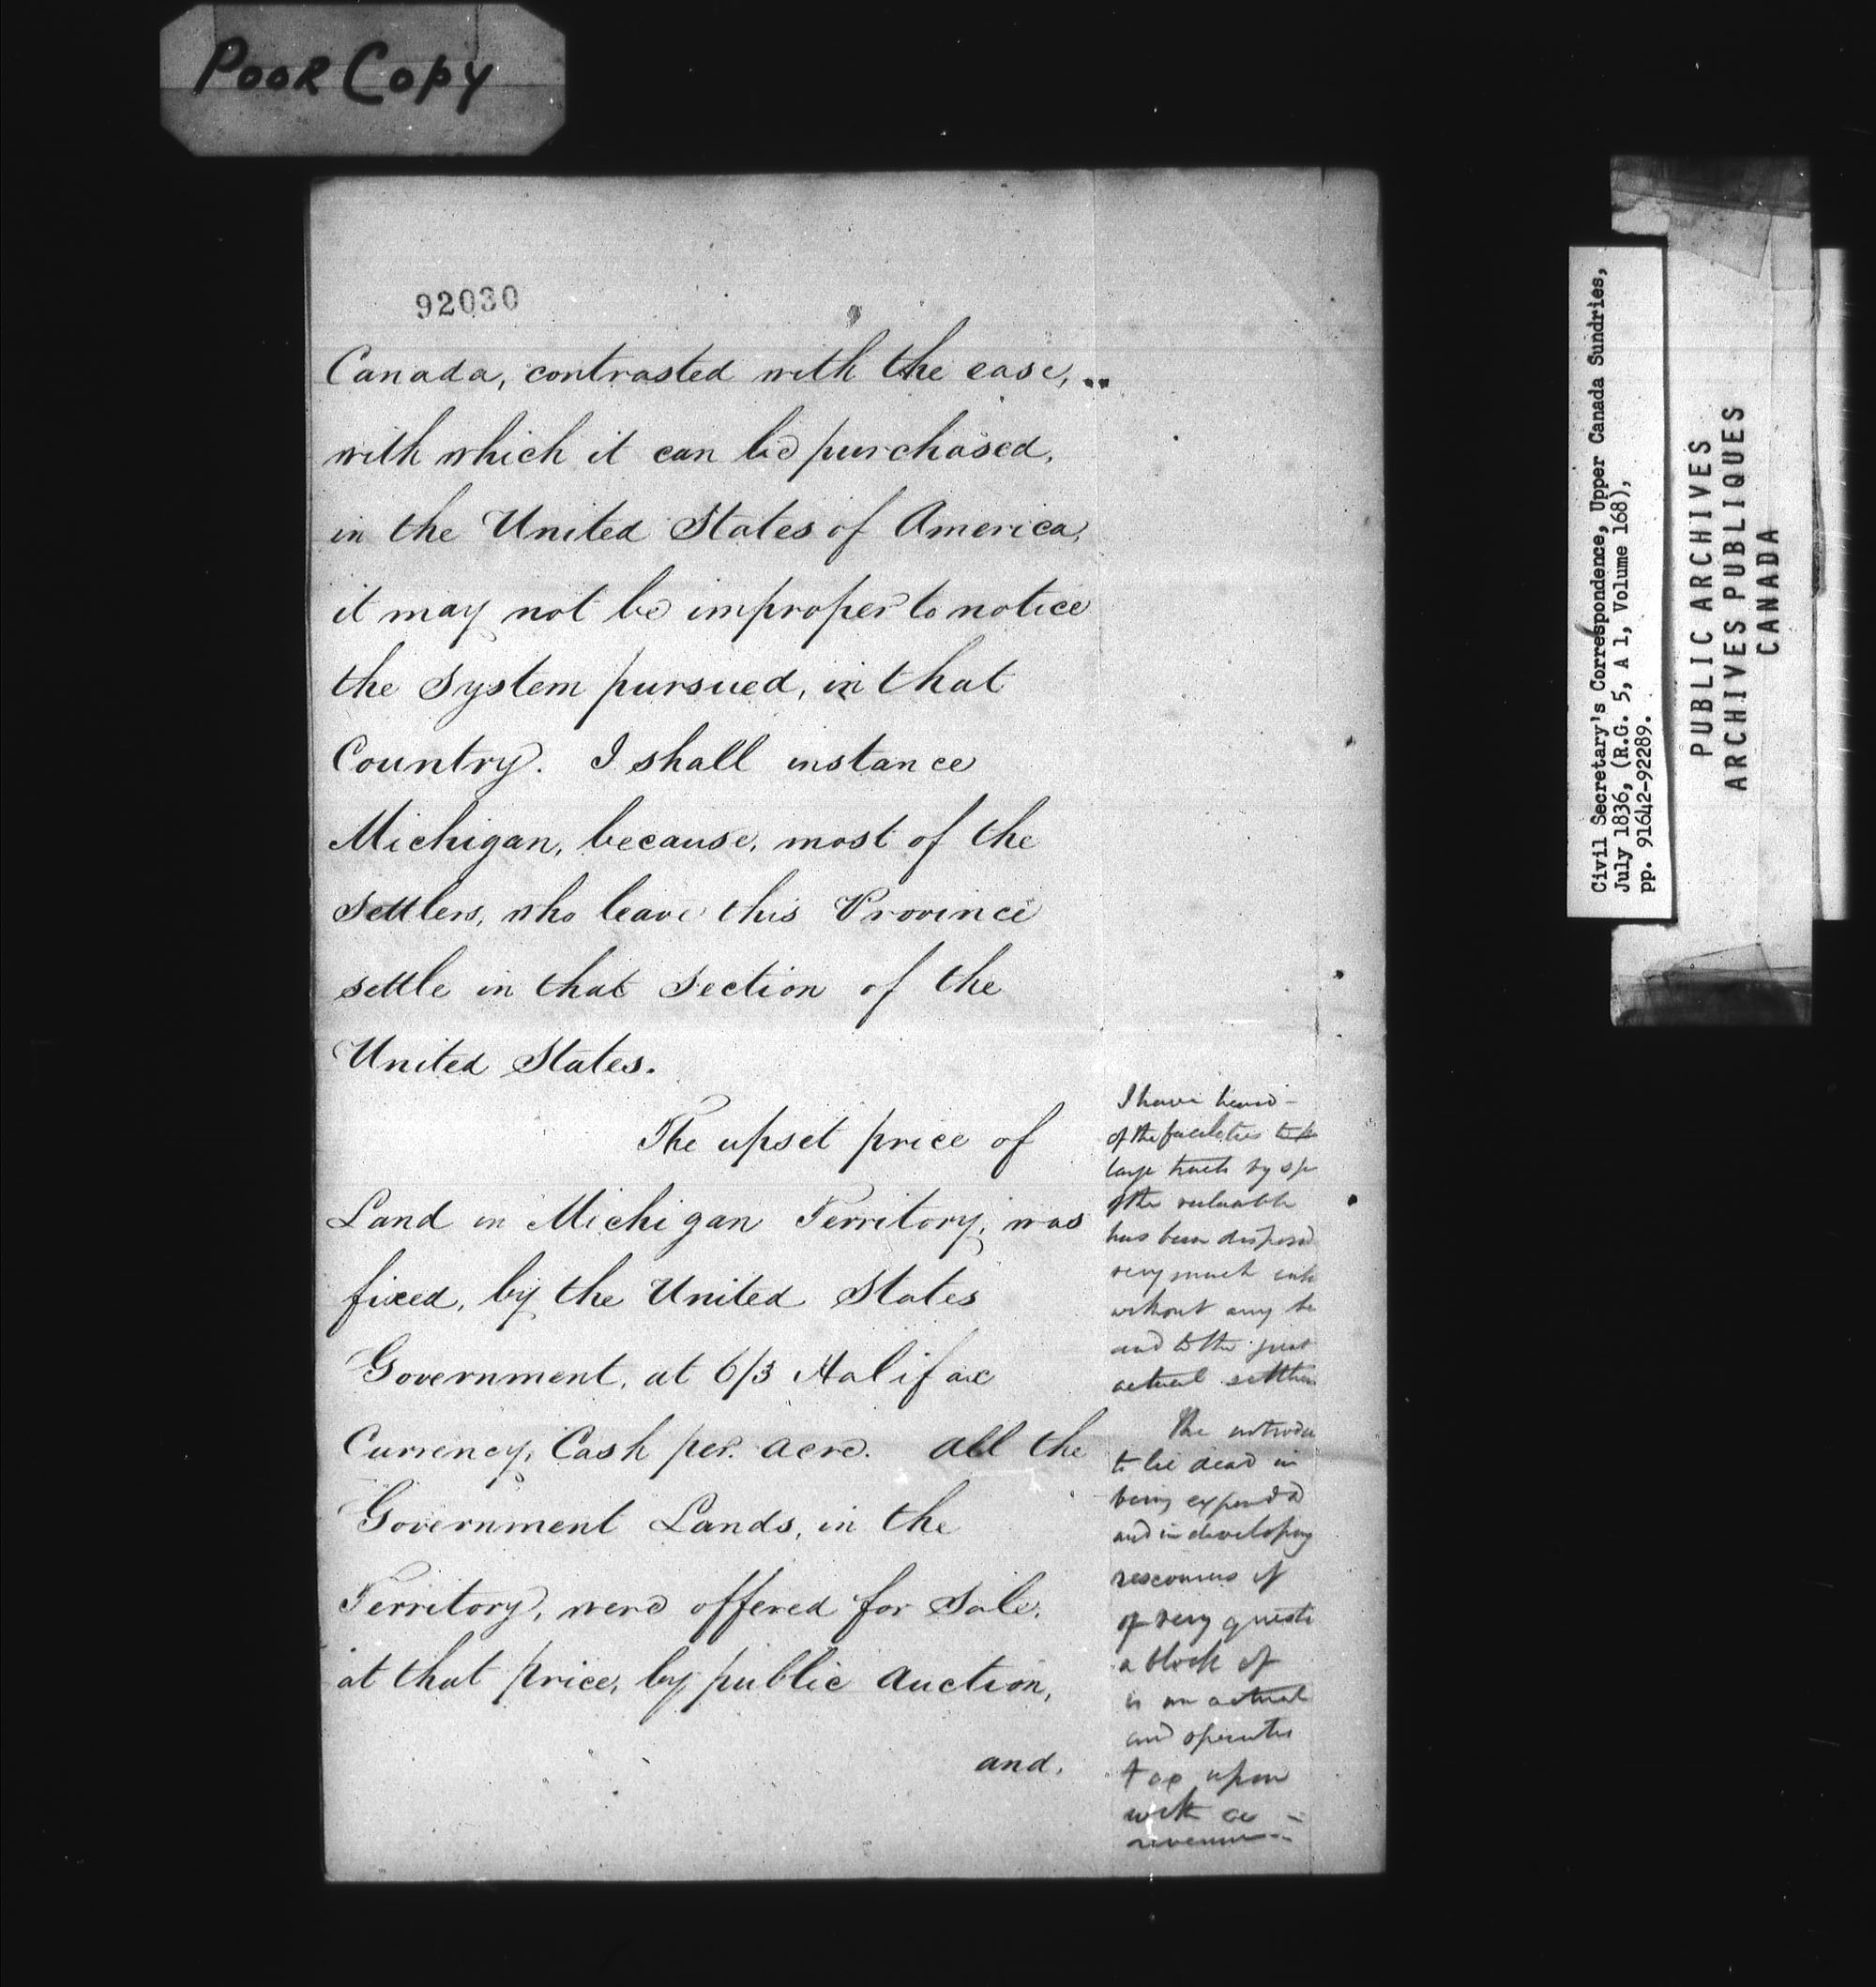 Poor Copy
92030
Canada, contrasted with the ease,
with which it can be purchased,
in the United States of America,
it may not be improper to notice
the System pursued, in that
Country. I shall instance
Michigan, because, most of the
Settlers, who leave this Province
settle in that Section of the
United States.
The upset price of
Land in Michigan Territory, was
fixed, by the United States
Government, at 6/3 Halifax
Currency, Cash per. acre. All the
Government Lands, in the
Territory, were offered for Sale,
at that price, by public Auction,
and,
I have heard
of the facilities
large tracts by
of the valuable
has been disposed
very much
without any
and to the great
actual
The
to lie dead in
being expended
and in developing
resources of
of very
a block of
is an actual
and operates
tax upon
with
revenue
Civil Secretary's Correspondence, Upper Canada Sundries,
July 1836, (R.G. 5, A 1, Volume 168),
pp. 91642-92289.
PUBLIC ARCHIVES
ARCHIVES PUBLIQUES
CANADA